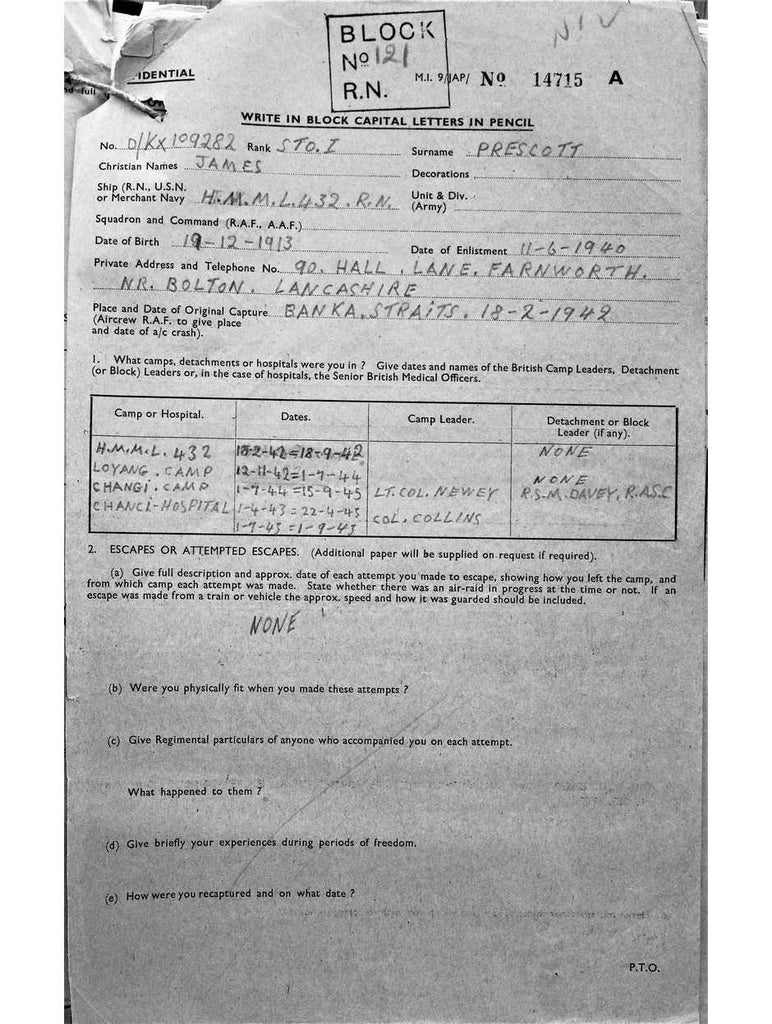 NIL
BLOCK
No 121
R.N.
IDENTIAL
nd full
M.I. 9/JAP/ No 14715 A
WRITE IN BLOCK CAPITAL LETTERS IN PENCIL
No. D/KX109282 Rank STO.I Surname PRESCOTT
Christian Names JAMES Decorations
Ship (R.N., U.S.N. or Merchant Navy H.M.M.L.432.R.N. Unit & Div. (Army)
Squadron and Command (R.A.F., A.A.F.)
Date of Birth 19-12-1913 Date of Enlistment 11-6-1940
Private Address and Telephone No. 90. HALL. LANE. FARNWORTH.
NR. BOLTON. LANCASHIRE
Place and Date of Original Capture BANKA. STRAITS. 18-2-1942
(Aircrew R.A.F. to give place
and date of a/c crash).
1. What camps, detachments or hospitals were you in ? Give dates and names of the British Camp Leaders, Detachment
(or Block) Leaders or, in the case of hospitals, the Senior British Medical Officers.
Camp or Hospital. Dates. Camp Leader. Detachment or Block Leader (if any).
H.M.M.L. 432 18-2-42=18-9-42 NONE
LOYANG. CAMP 12-11-42=1-7-44 NONE
CHANGI. CAMP 1-7-44=15-9-45 LT. COL. NEWEY R.S.M. DAVEY, R.A.S.C
CHANCI-HOSPITAL 1-4-43=22-4-43
1-7-43=1-9-43 COL. COLLINS
2. ESCAPES OR ATTEMPTED ESCAPES. (Additional paper will be supplied on request if required).
(a) Give full description and approx. date of each attempt you made to escape, showing how you left the camp, and
from which camp each attempt was made. State whether there was an air-raid in progress at the time or not. If an
escape was made from a train or vehicle the approx. speed and how it was guarded should be included.
NONE
(b) Were you physically fit when you made these attempts ?
(c) Give Regimental particulars of anyone who accompanied you on each attempt.
What happened to them ?
(d) Give briefly your experiences during periods of freedom.
(e) How were you recaptured and on what date ?
P.T.O.